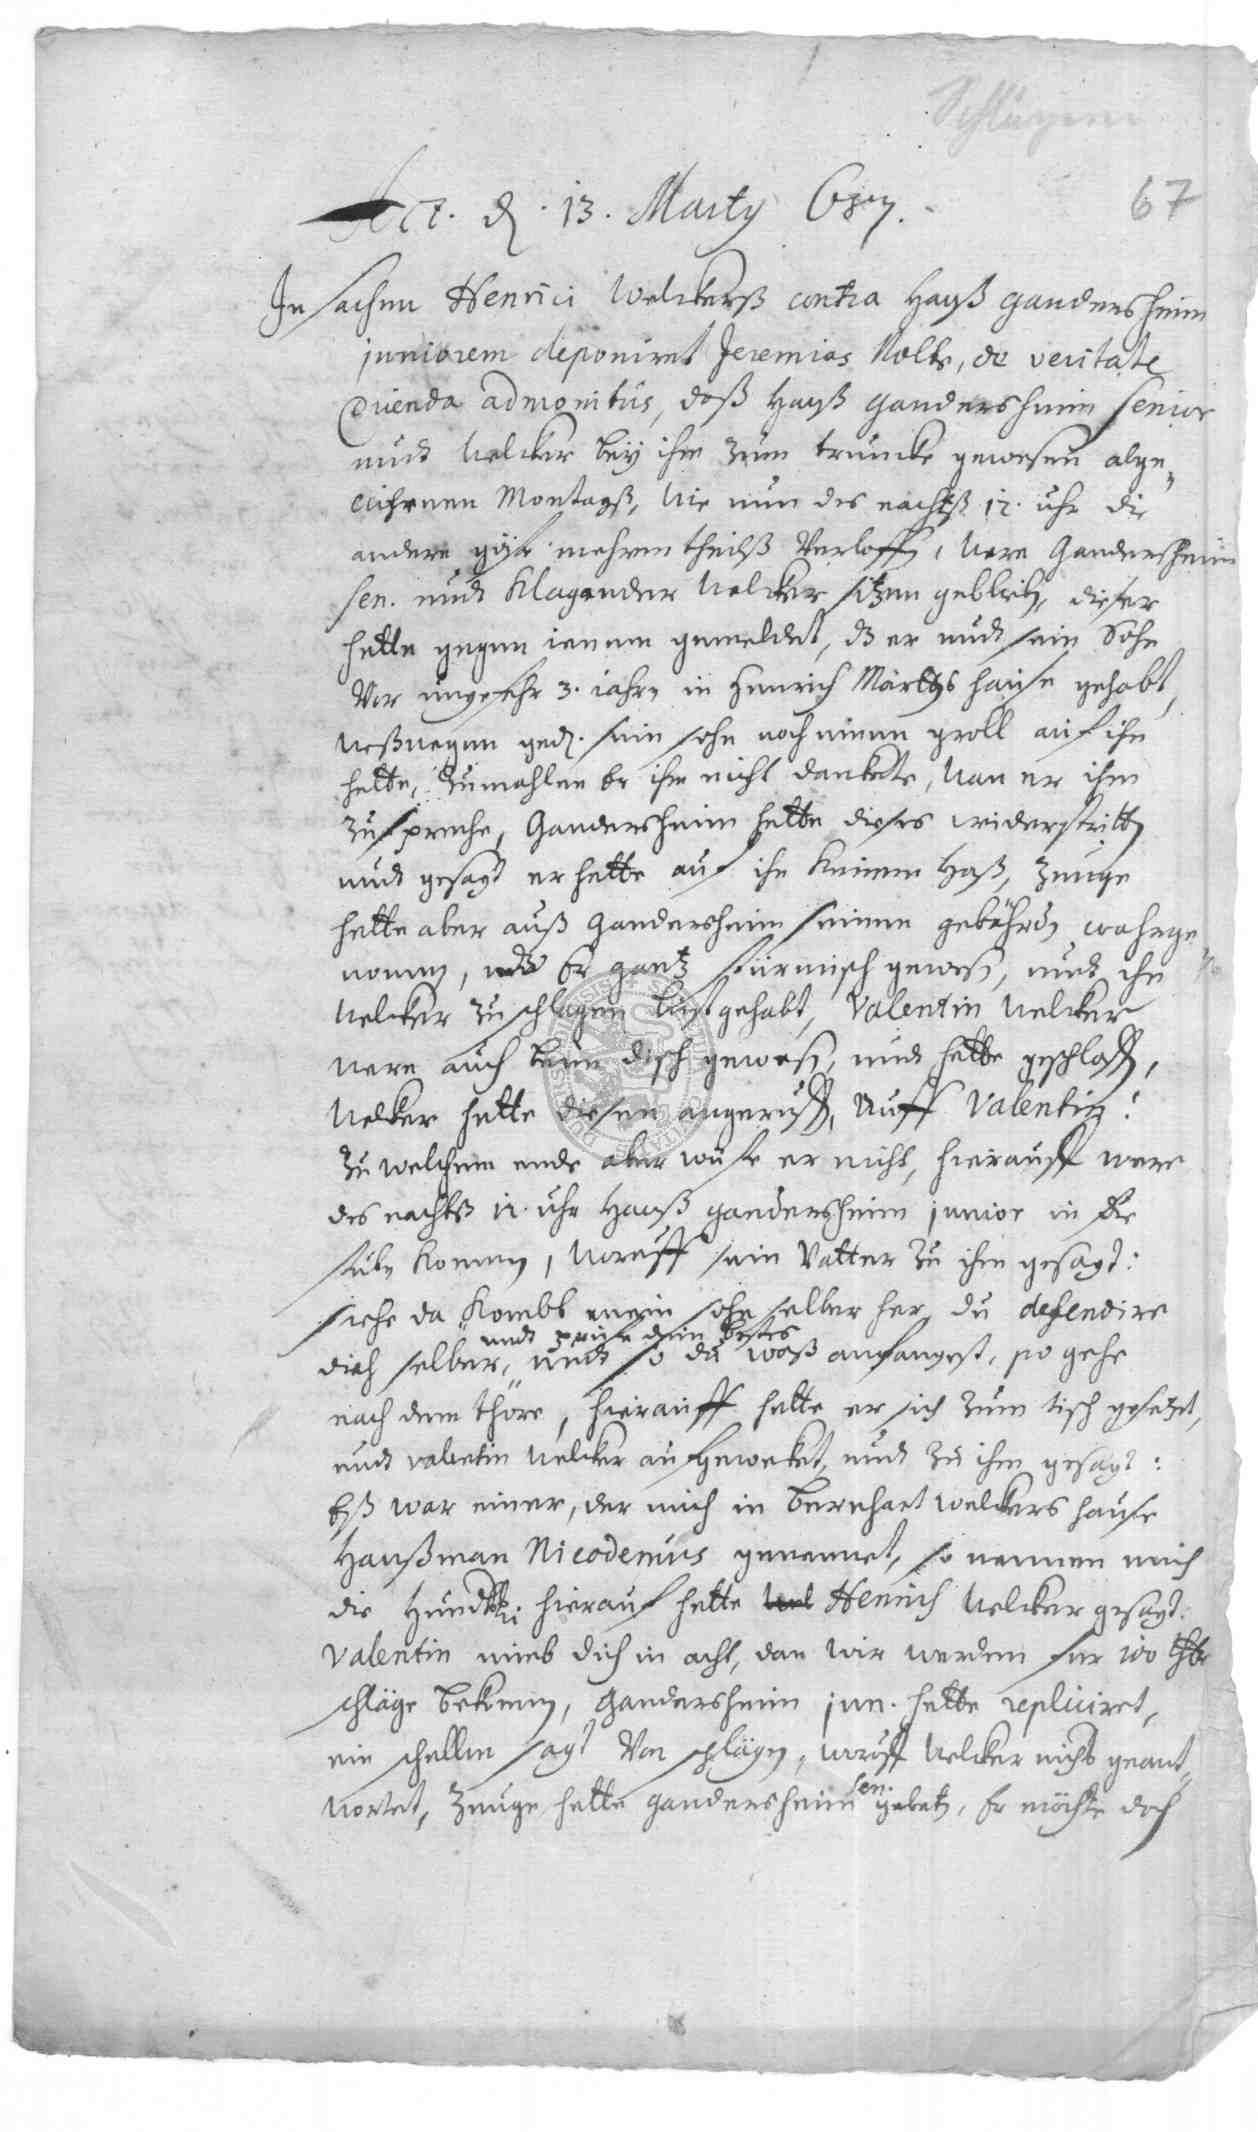 Schlägerei
67
Act. d. 13. Marty
In sachen Henrici Welckerß contra Hanß Gandersheim
juniorem deponiret Jeremias Nolte, de veritate
dicenda admonitus, daß Hanß Gandersheim senior
undt Welcker bey ihm zum truncke gewesen abge-
wichenen Montagß, Wie nun des nachtß 12. uhr die
andere gäste mehrentheilß Verloffen, Were Gandersheim
sen. undt Klagender Welcker sitzen geblieben, dieser
hette gegen ienem gemeldet, dz er undt sein Sohn
Vor ungefehr 3. iahren in Henrich hause gehabt,
Weßwegen ged. sein sohn noch einen groll auf ihn
hette, Zumahlen Er ihm nicht danckete, Wan er ihm
zuspreche, Gandersheim hette dieses widerstritten
undt gesagt er hette auf ihn keinen Haß, Zeuge
hette aber auß Gandersheim seinen gebährden wahrge-
nommen, Er gantz stürmisch gewesen, undt ihn
Welcker zu schlagen lust gehabt, Valentin Welcker
were auch beim disch gewesen, undt hette geschlaffen,
Welcker hette diesen angeruffen, Auff Valentin!
Zu welchem ende aber wüste er nicht, hierauff were
des nachtß 12. uhr Hanß Gandersheim junior in die
stube kommen, Worauff sein Vatter zu ihm gesagt:
siehe da kombt mein sohn selber her, du defendire
undt dein bestes
dich selber, undt so du waß anfangest, so gehe
nach dem thore, hierauff hette er sich zum tisch gesetzet,
undt valentin Welcker aufgewecket, undt zu ihm gesagt:
Eß war einer, der mich in Bernhart Welckers hause
Haußman Nicodemus genennet, so nennen mich
die hierauf hette Wel Henrich Welcker gesagt:
Valentin nimb dich in acht, dan wir werden für 100 thlr
schläge bekommen, Gandersheim jun. hette repliciret,
ein schellm sagt Von schlägen, worauff Welcker nicht geant-
wortet, Zeuge hette Gandersheim sen. gebeten, Er möchte doch